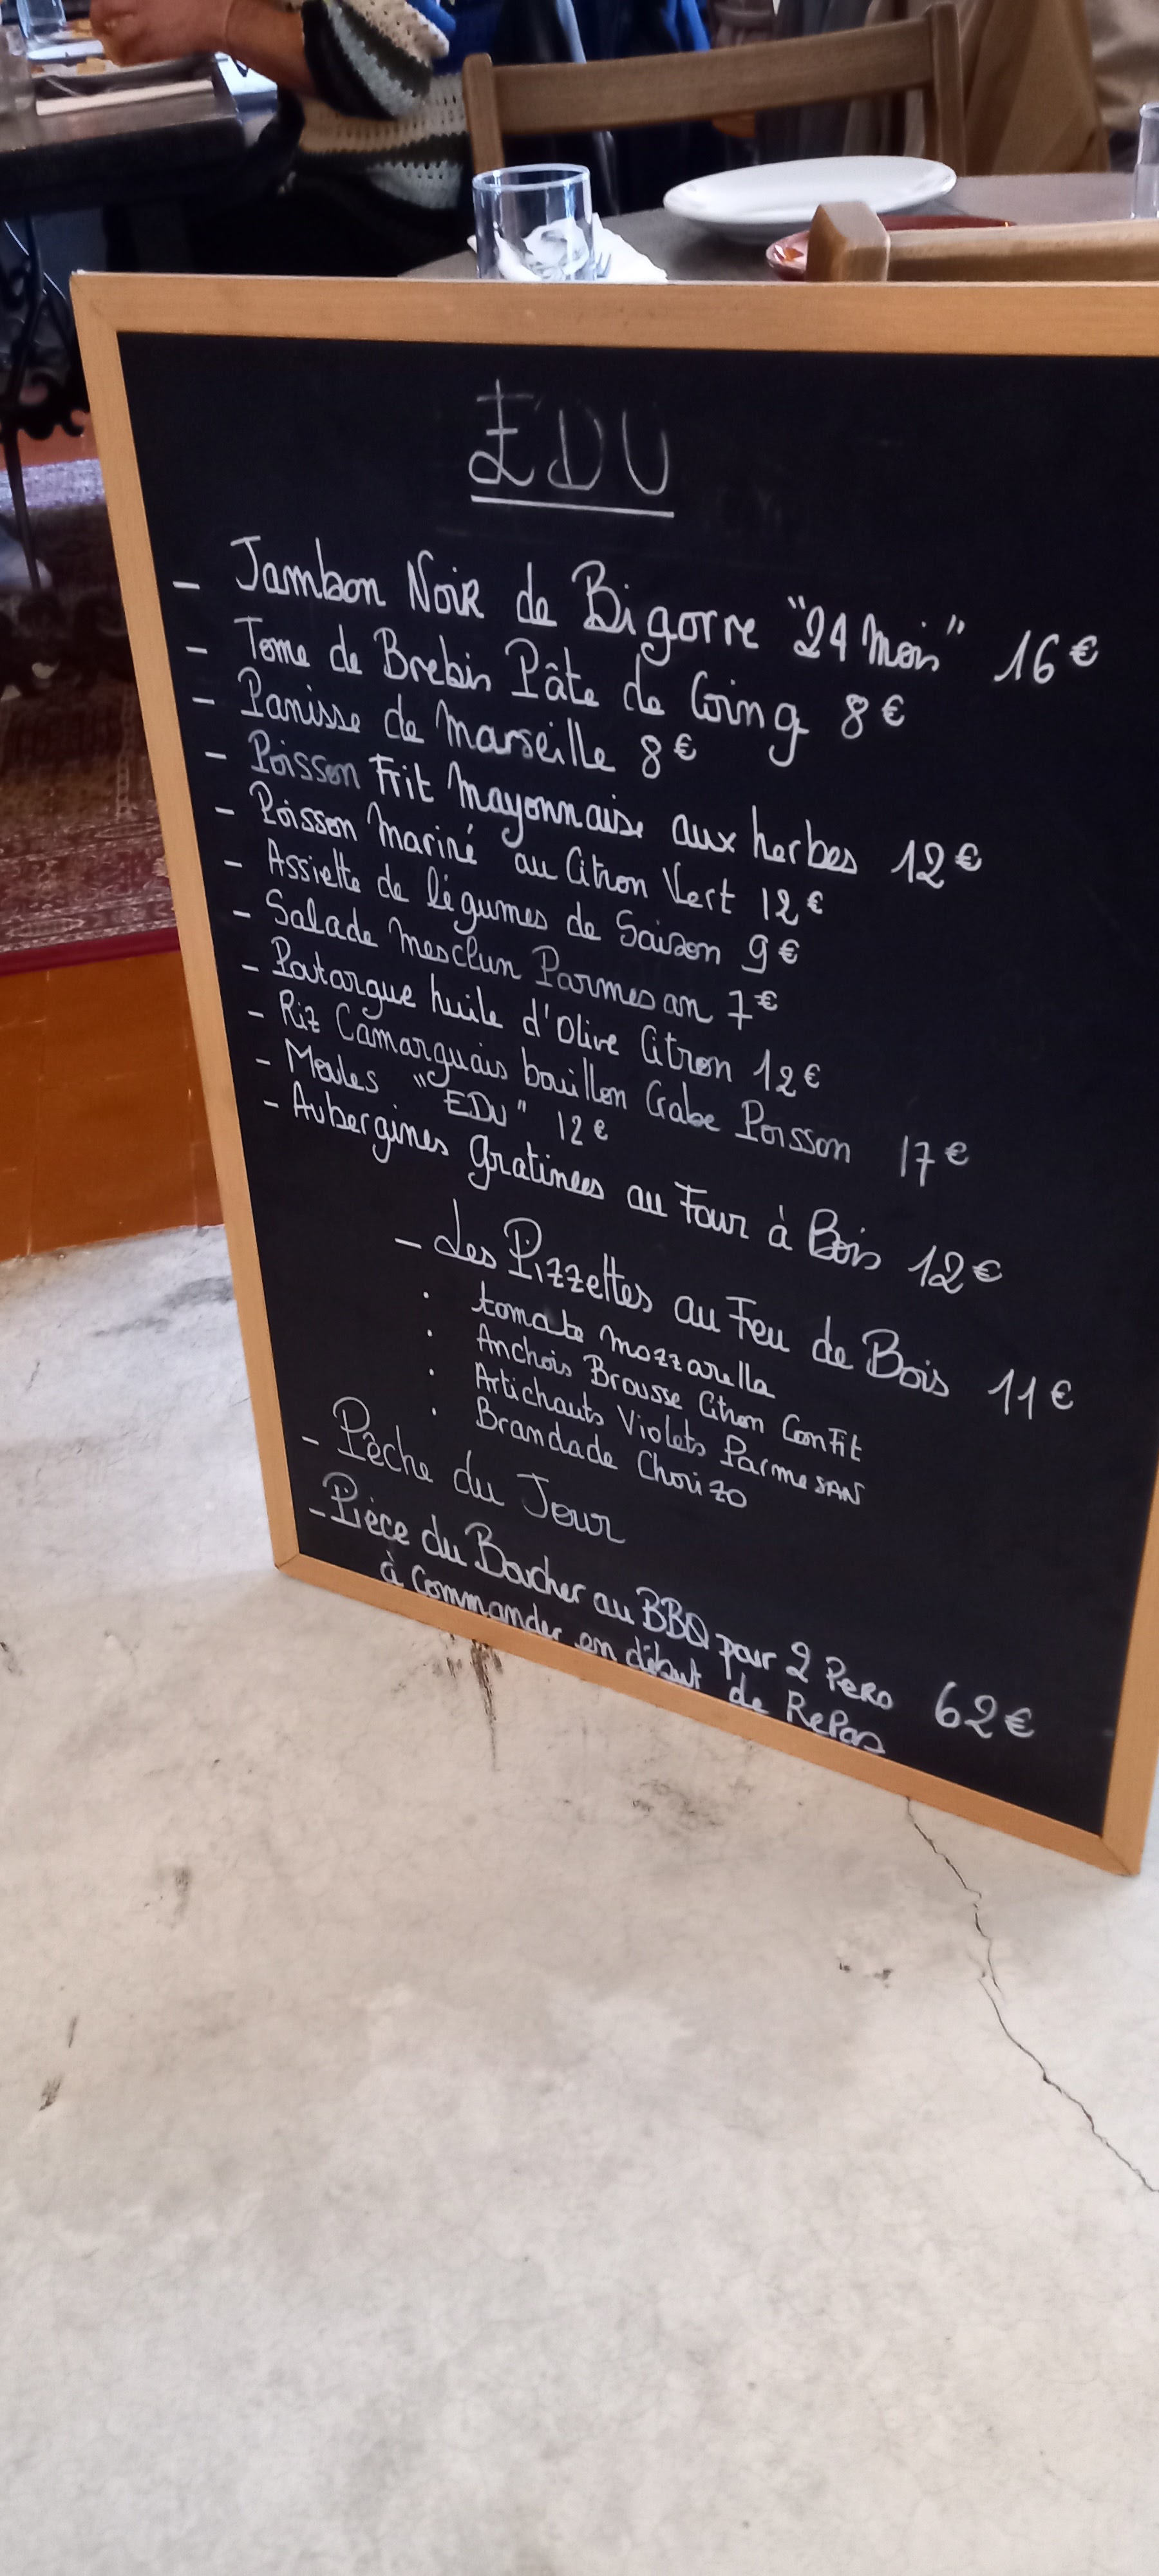 EDU
- Jambon Noir de Bigorre "24 Mois" 16€
- Tome de Brebis Pâte de Coing 8€
- Panisse de Marseille 8€
- Poisson Frit Mayonnaise aux herbes 12€
- Poisson Mariné au Citron Vert 12€
- Assiette de légumes de Saison 9€
- Salade Mesclun Parmesan 7€
- Poutargue huile d'Olive Citron 12€
- Riz Camarguais bouillon Crabe Poisson 17€
- Moules "EDU" 12€
- Aubergines gratinées au Four à Bois 12€
- Les Pizzettes au Feu de Bois 11€
. tomate mozzarella
. Anchois Brousse Citron Confit
. Artichauts Violets Parmesan
. Brandade Chorizo
- Pêche du Jour
- Pièce du Boucher au BBQ pour 2 Pers 62€
à Commander en début de Repas